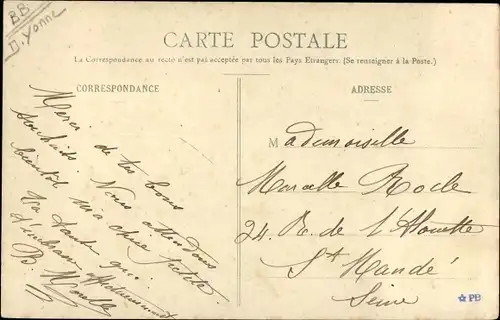 BB
D. Yonne
CARTE POSTALE
La Correspondance au recto n'est pas acceptée par tous les Pays Etrangers. (Se renseigner à la Poste.)
CORRESPONDANCE
Merci de tes bons
souhaits. Nous attendons
bientôt ma chère petite.
Ta tante qui
t'embrasse affectueusement
B.
ADRESSE
Mademoiselle
Marcelle Rocle
24. R. de l'Alouette
St Mandé
Seine
PB